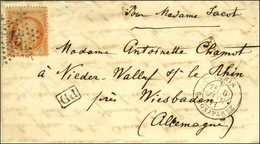 Pour Madame Jacot
Madame Antoinette Chamot
à Nieder-Walluf s/ le Rhin
PD
près Wiesbaden
(Allemagne)